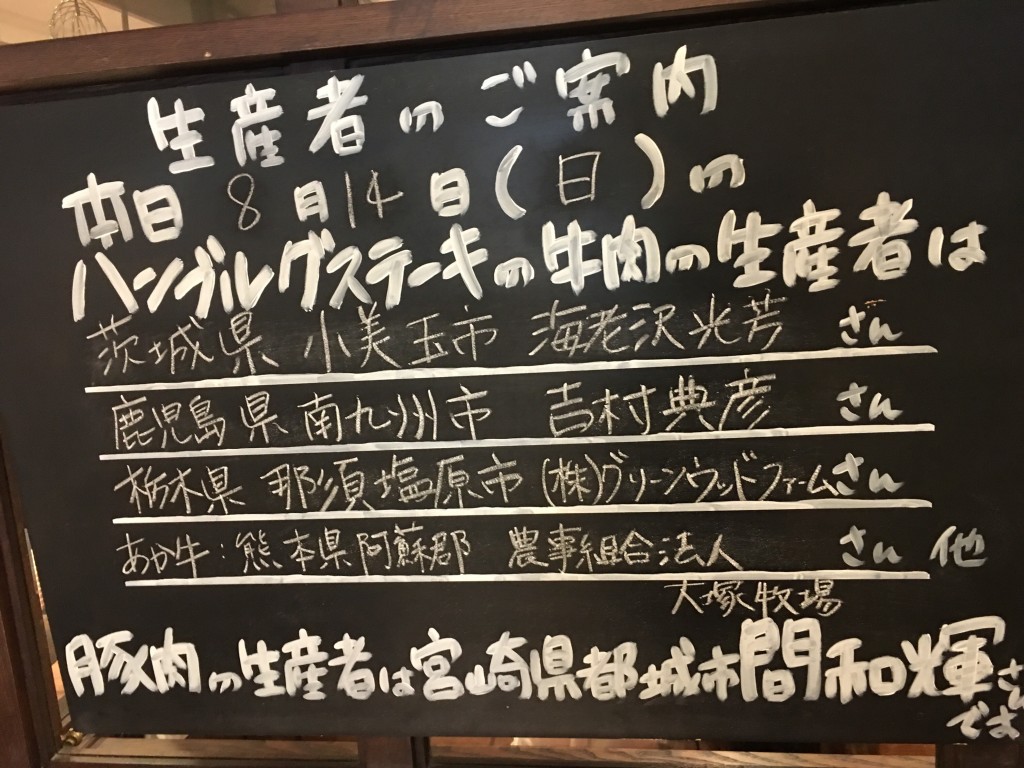 生産者のご案内
本日 8月14日(日)の
ハンブルグステーキの牛肉の生産者は
茨城県 小美玉市 海老沢光芳 さん
鹿児島県 南九州市 吉村典彦 さん
栃木県 那須塩原市 (株)グリーンウッドファームさん
あか牛:熊本県阿蘇郡 農事組合法人 さん 他
大塚牧場
豚肉の生産者は宮崎県都城市間和輝さん
です